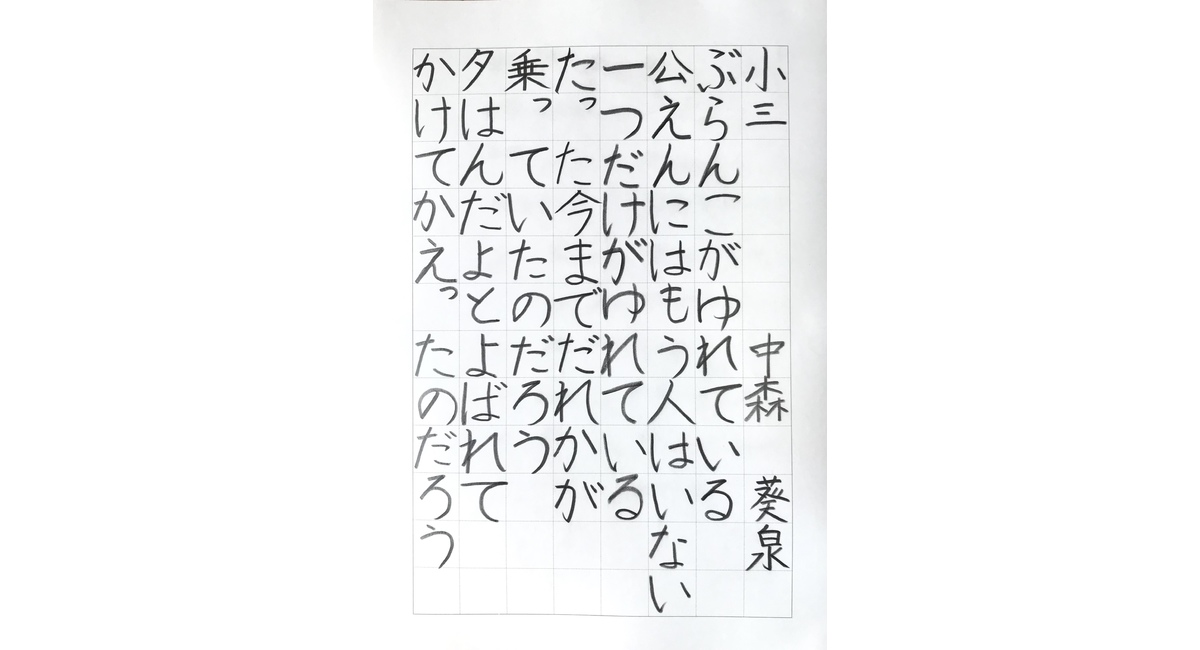 小三 中森 葵泉
ぶらんこがゆれている
公えんにはもう人はいない
一つだけがゆれている
たったた今までだれかが
乗っていたのだろう
夕はんだよとよばれて
かけてかえったのだろう